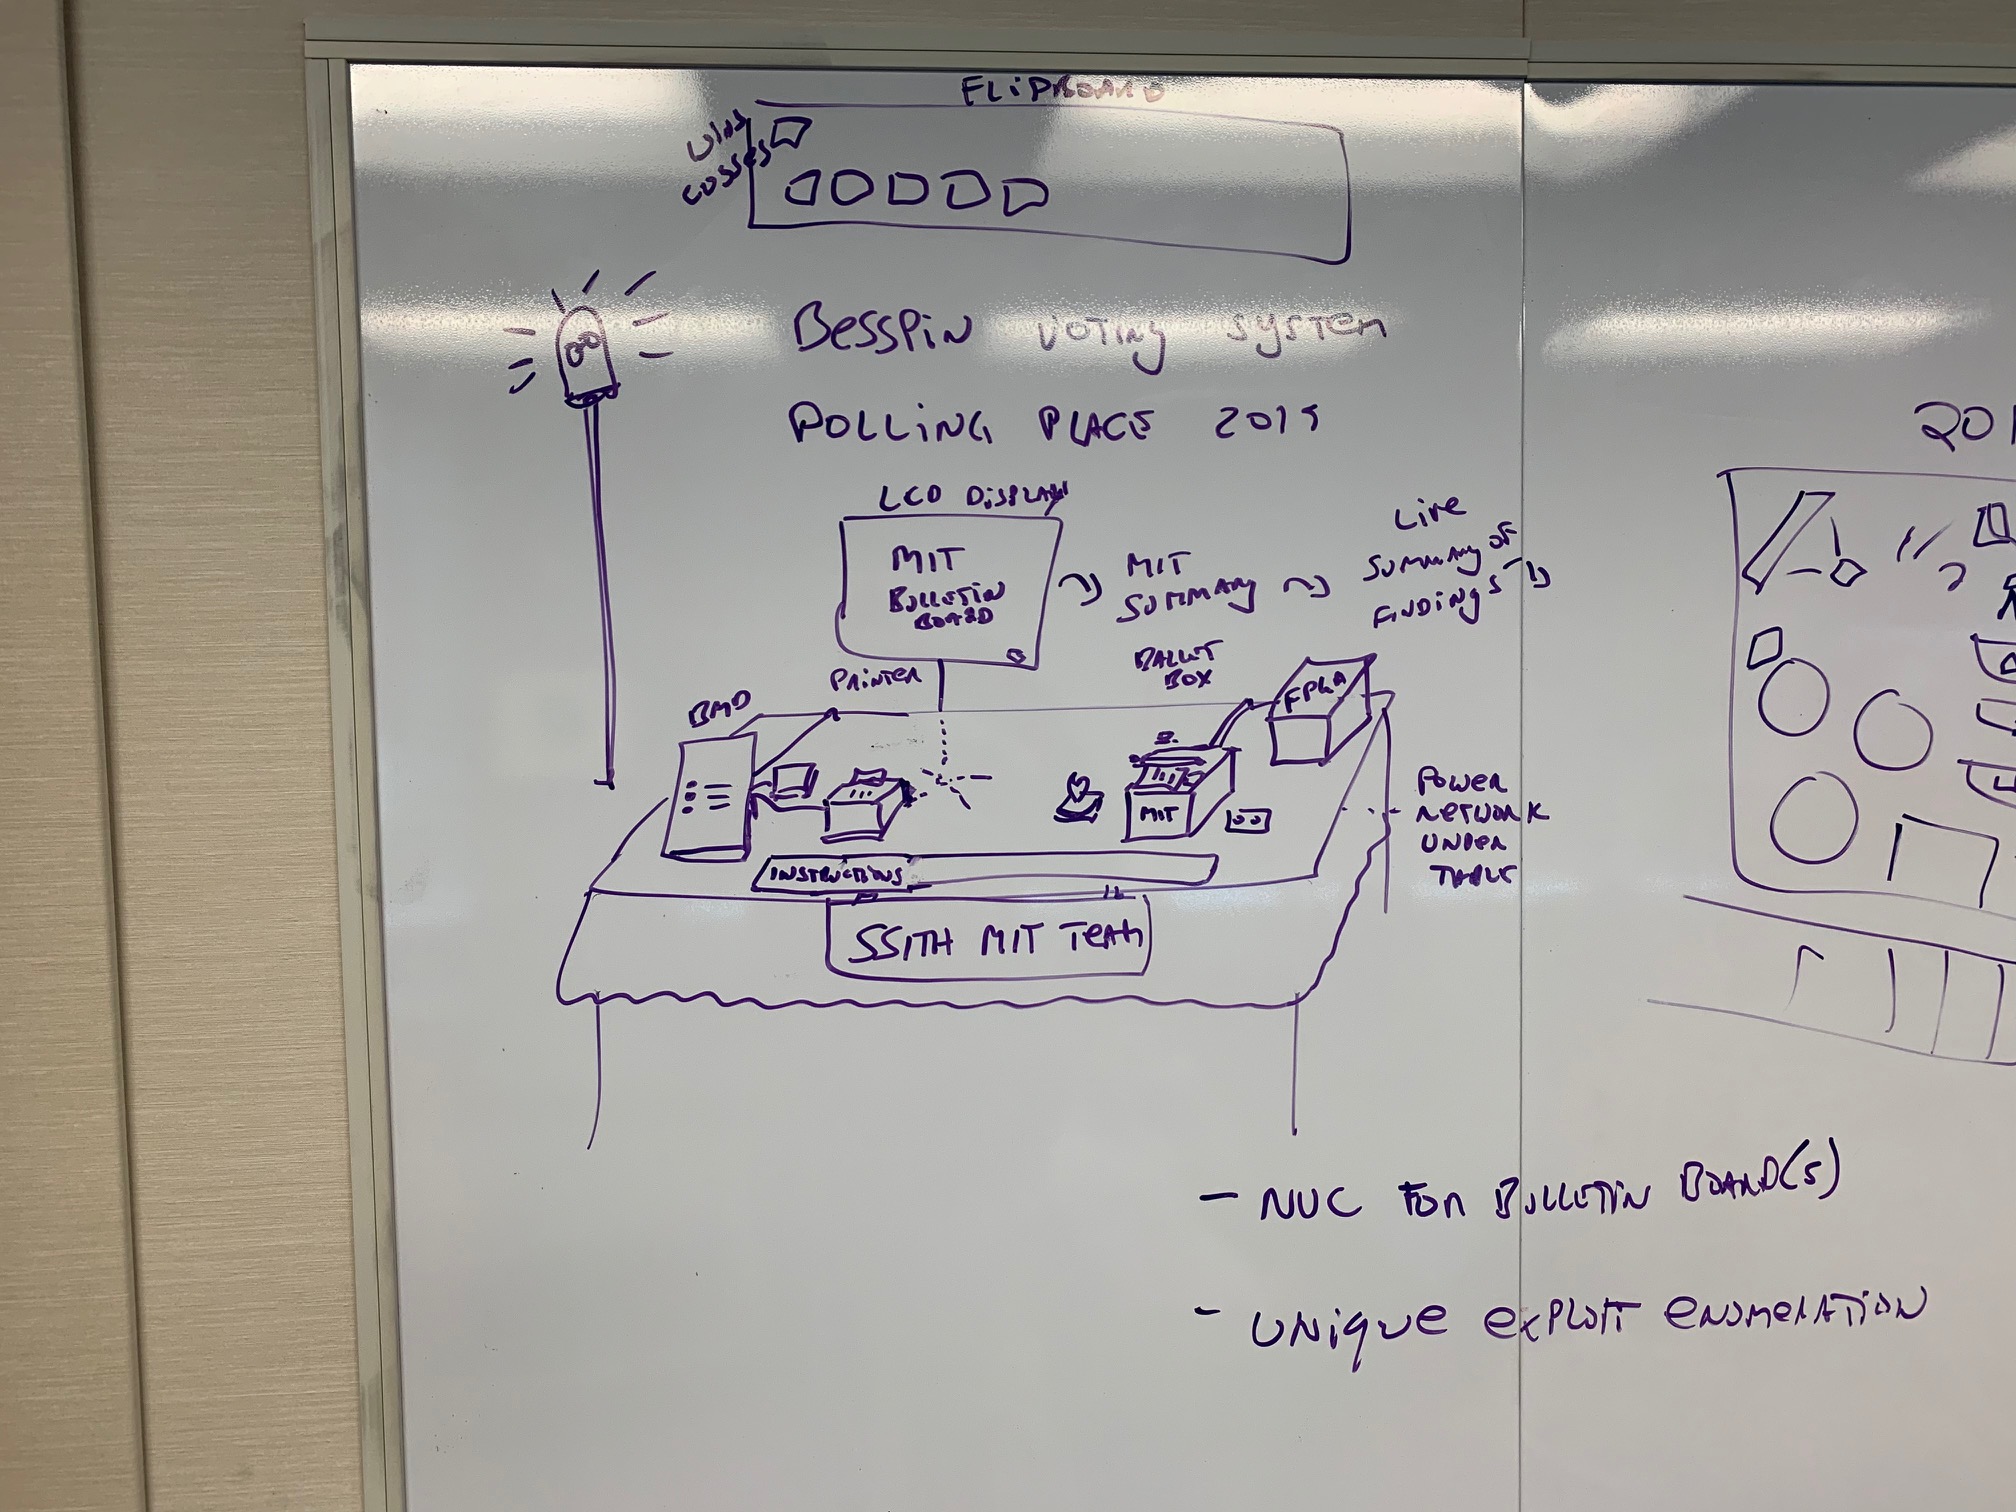 FLiPBOARD
WINS
LOSSES
BESSPiN VOTiNg SYSTEM
POLLiNG PLACE 2019
LCD DiSPLAY
MIT
BULLETIN
BOARD
MIT
SUMMARY
Live
SUMMARY OF
FiNDiNgS
BALLOT
BOX
PRiNTER
BMD
FPGA
MIT
POWER
NETWORK
UNDER
TABLE
INSTRUCTIONS
SSITH MIT TEAM
201
- NUC FOR BULLETIN BOARD(S)
- UNiQUE EXPLOIT ENUMERATiON